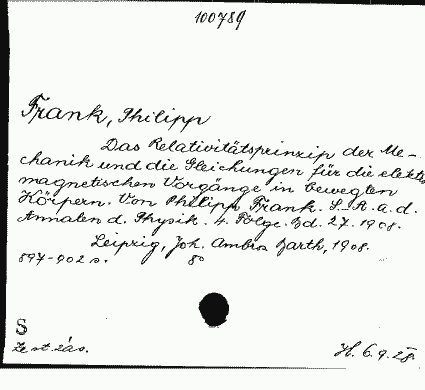 100789
Frank, Philipp
Das Relativitätsprinzip der Me-
chanik und die Gleichungen für die elektro
magnetischen Vorgänge in bewegten
Körpern. Von Philipp Frank. S.-A. a. d.
Annalen d. Physik. 4. Folge. Bd. 27. 1908.
Leipzig, Joh. Ambros. Barth, 1908.
897-902 s. 8°
S
H. 6.9.28.